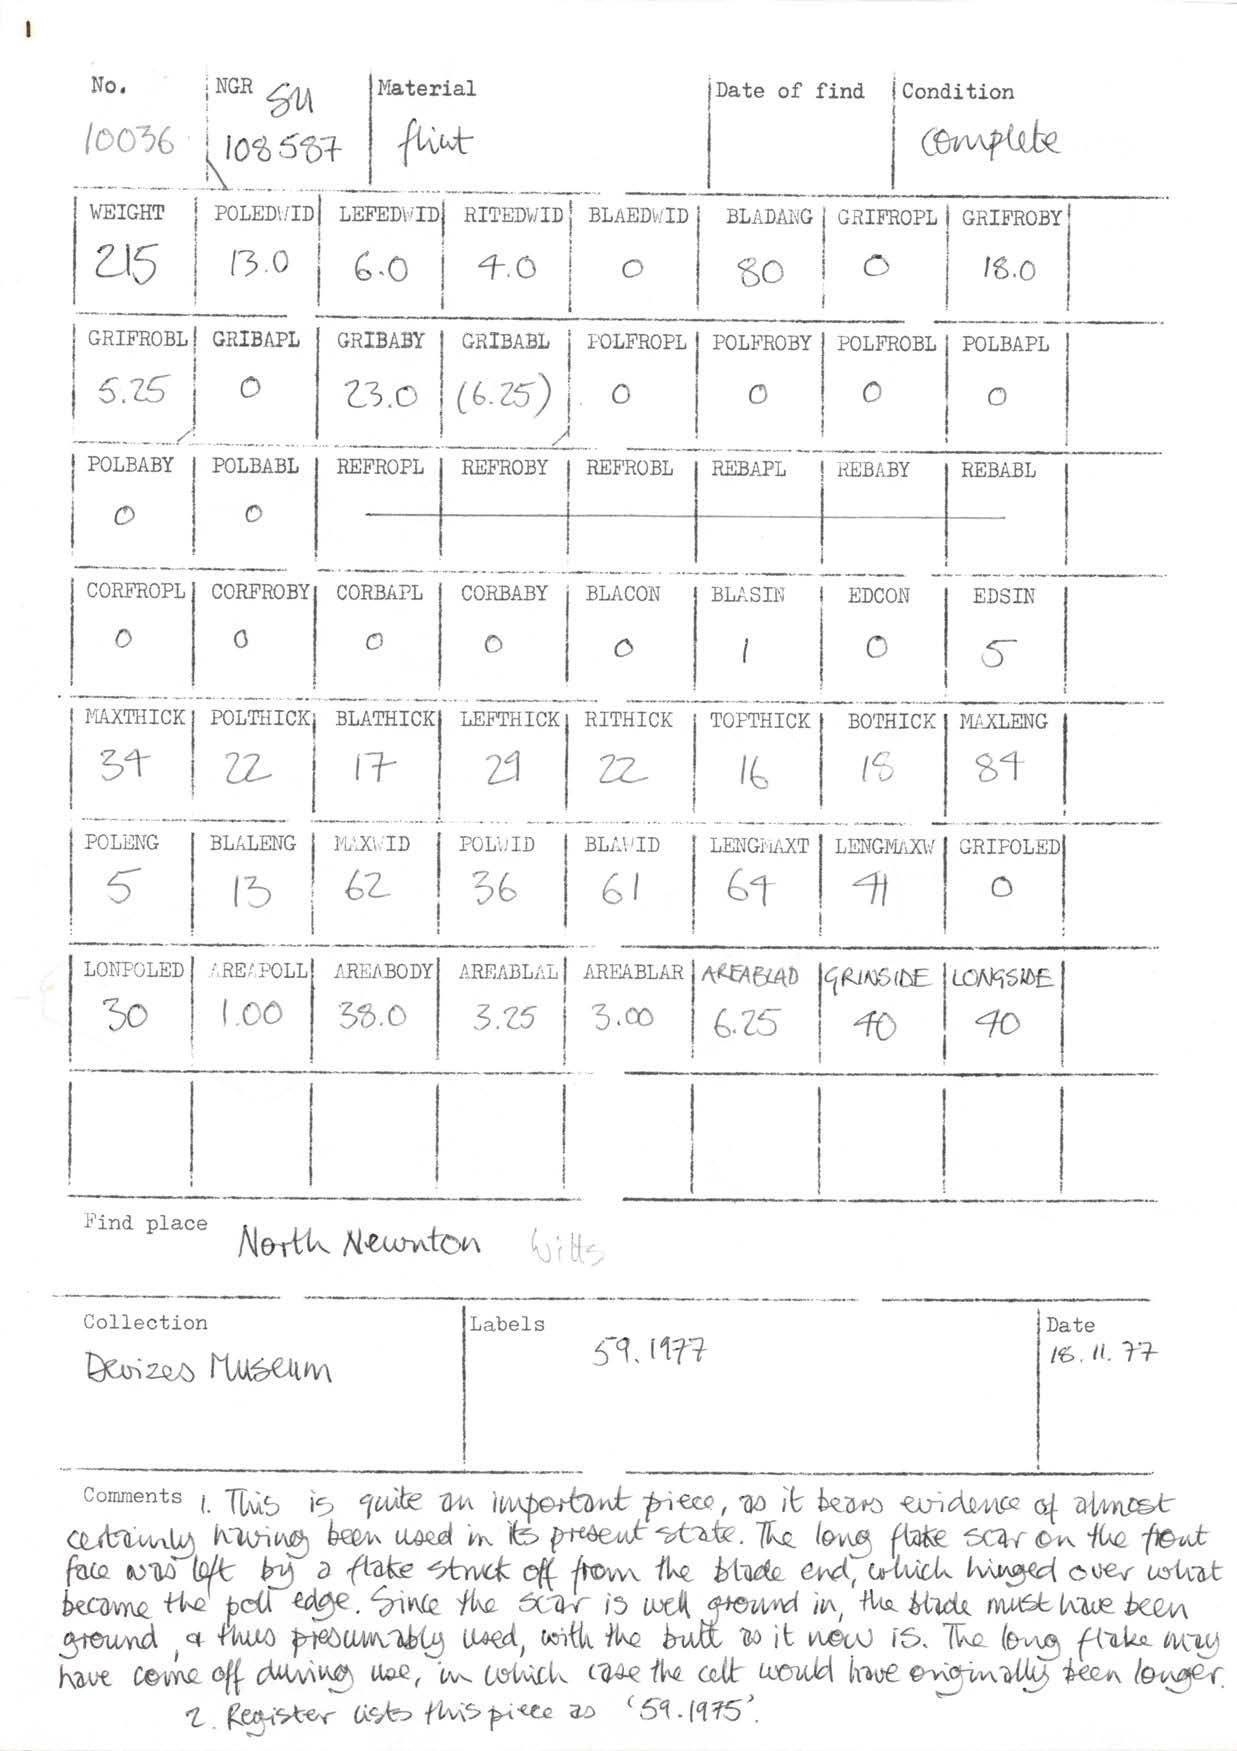 1
No. NGR SU Material Date of find Condition
10036 108587 flint complete
WEIGHT POLEDWID LEFEDWID RITEDWID BLAEDWID BLADANG GRIFROPL GRIFROBY
215 13.0 6.0 4.0 0 80 0 18.0
GRIFROBL GRIBAPL GRIBABY GRIBABL POLFROPL POLFROBY POLFROBL POLBAPL
5.25 0 23.0 (6.25) 0 0 0 0
POLBABY POLBABL REFROPL REFROBY REFROBL REBAPL REBABY REBABL
0 0
CORFROPL CORFROBY CORBAPL CORBABY BLACON BLASIN EDCON EDSIN
0 0 0 0 0 1 0 5
MAXTHICK POLTHICK BLATHICK LEFTHICK RITHICK TOPTHICK BOTHICK MAXLENG
34 22 17 29 22 16 18 84
POLENG BLALENG MAXWID POLWID BLAWID LENGMAXT LENGMAXW GRIPOLED
5 13 62 36 61 64 41 0
LONPOLED AREAPOLL AREABODY AREABLAL AREABLAR AREABLAD GRINSIDE LONGSIDE
30 1.00 38.0 3.25 3.00 6.25 40 40
Find place North Newnton Wilts
Collection Labels Date
Devizes Museum 59.1977 18.11.77
Comments 1. This is quite an important piece, as it bears evidence of almost
certainly having been used in its present state. The long flake scar on the front
face was left by a flake struck off from the blade end, which hinged over what
became the poll edge. Since the scar is well ground in, the blade must have been
ground, & thus presumably used, with the butt as it now is. The long flake may
have come off during use, in which case the celt would have originally been longer.
2. Register lists this piece as '59.1975'.